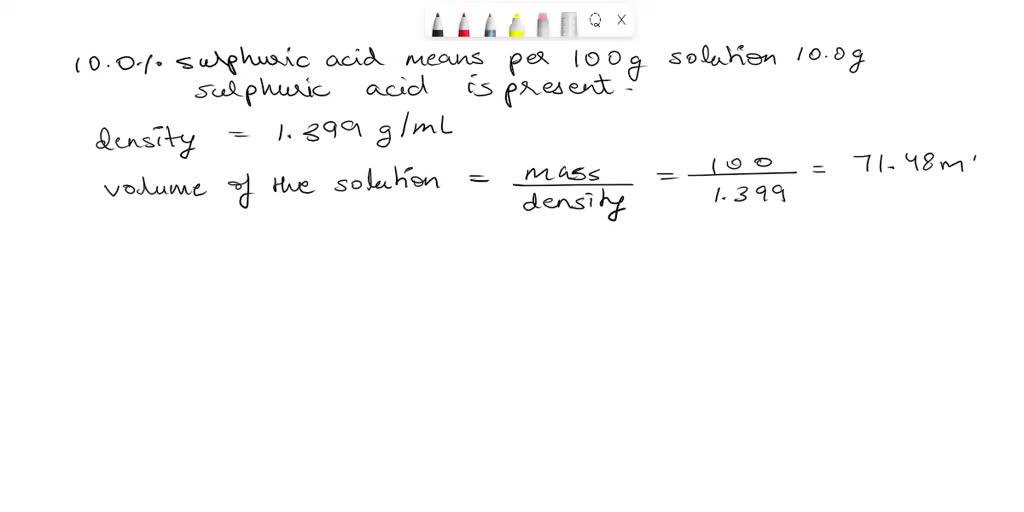 10.0% sulphuric acid means per 100g solution 10.0g
sulphuric acid is present.
density = 1.399 g/mL
volume of the solution = mass/density = 100/1.399 = 71.48m